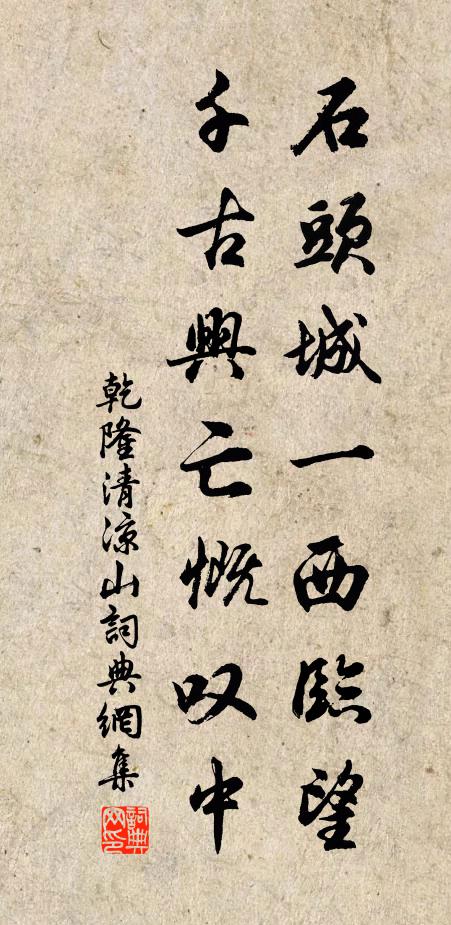 石頭城一西臨望
千古興亡慨叹中
乾隆清凉山詞典網集
詞典网印